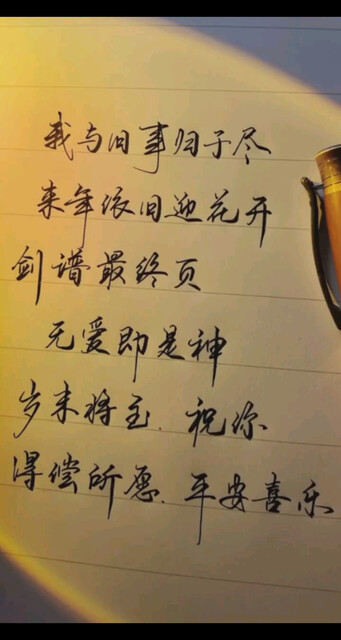 我与旧事归于尽
来年依旧迎花开
剑谱最终页
无爱即是神
岁末将至.祝你
得偿所愿.平安喜乐